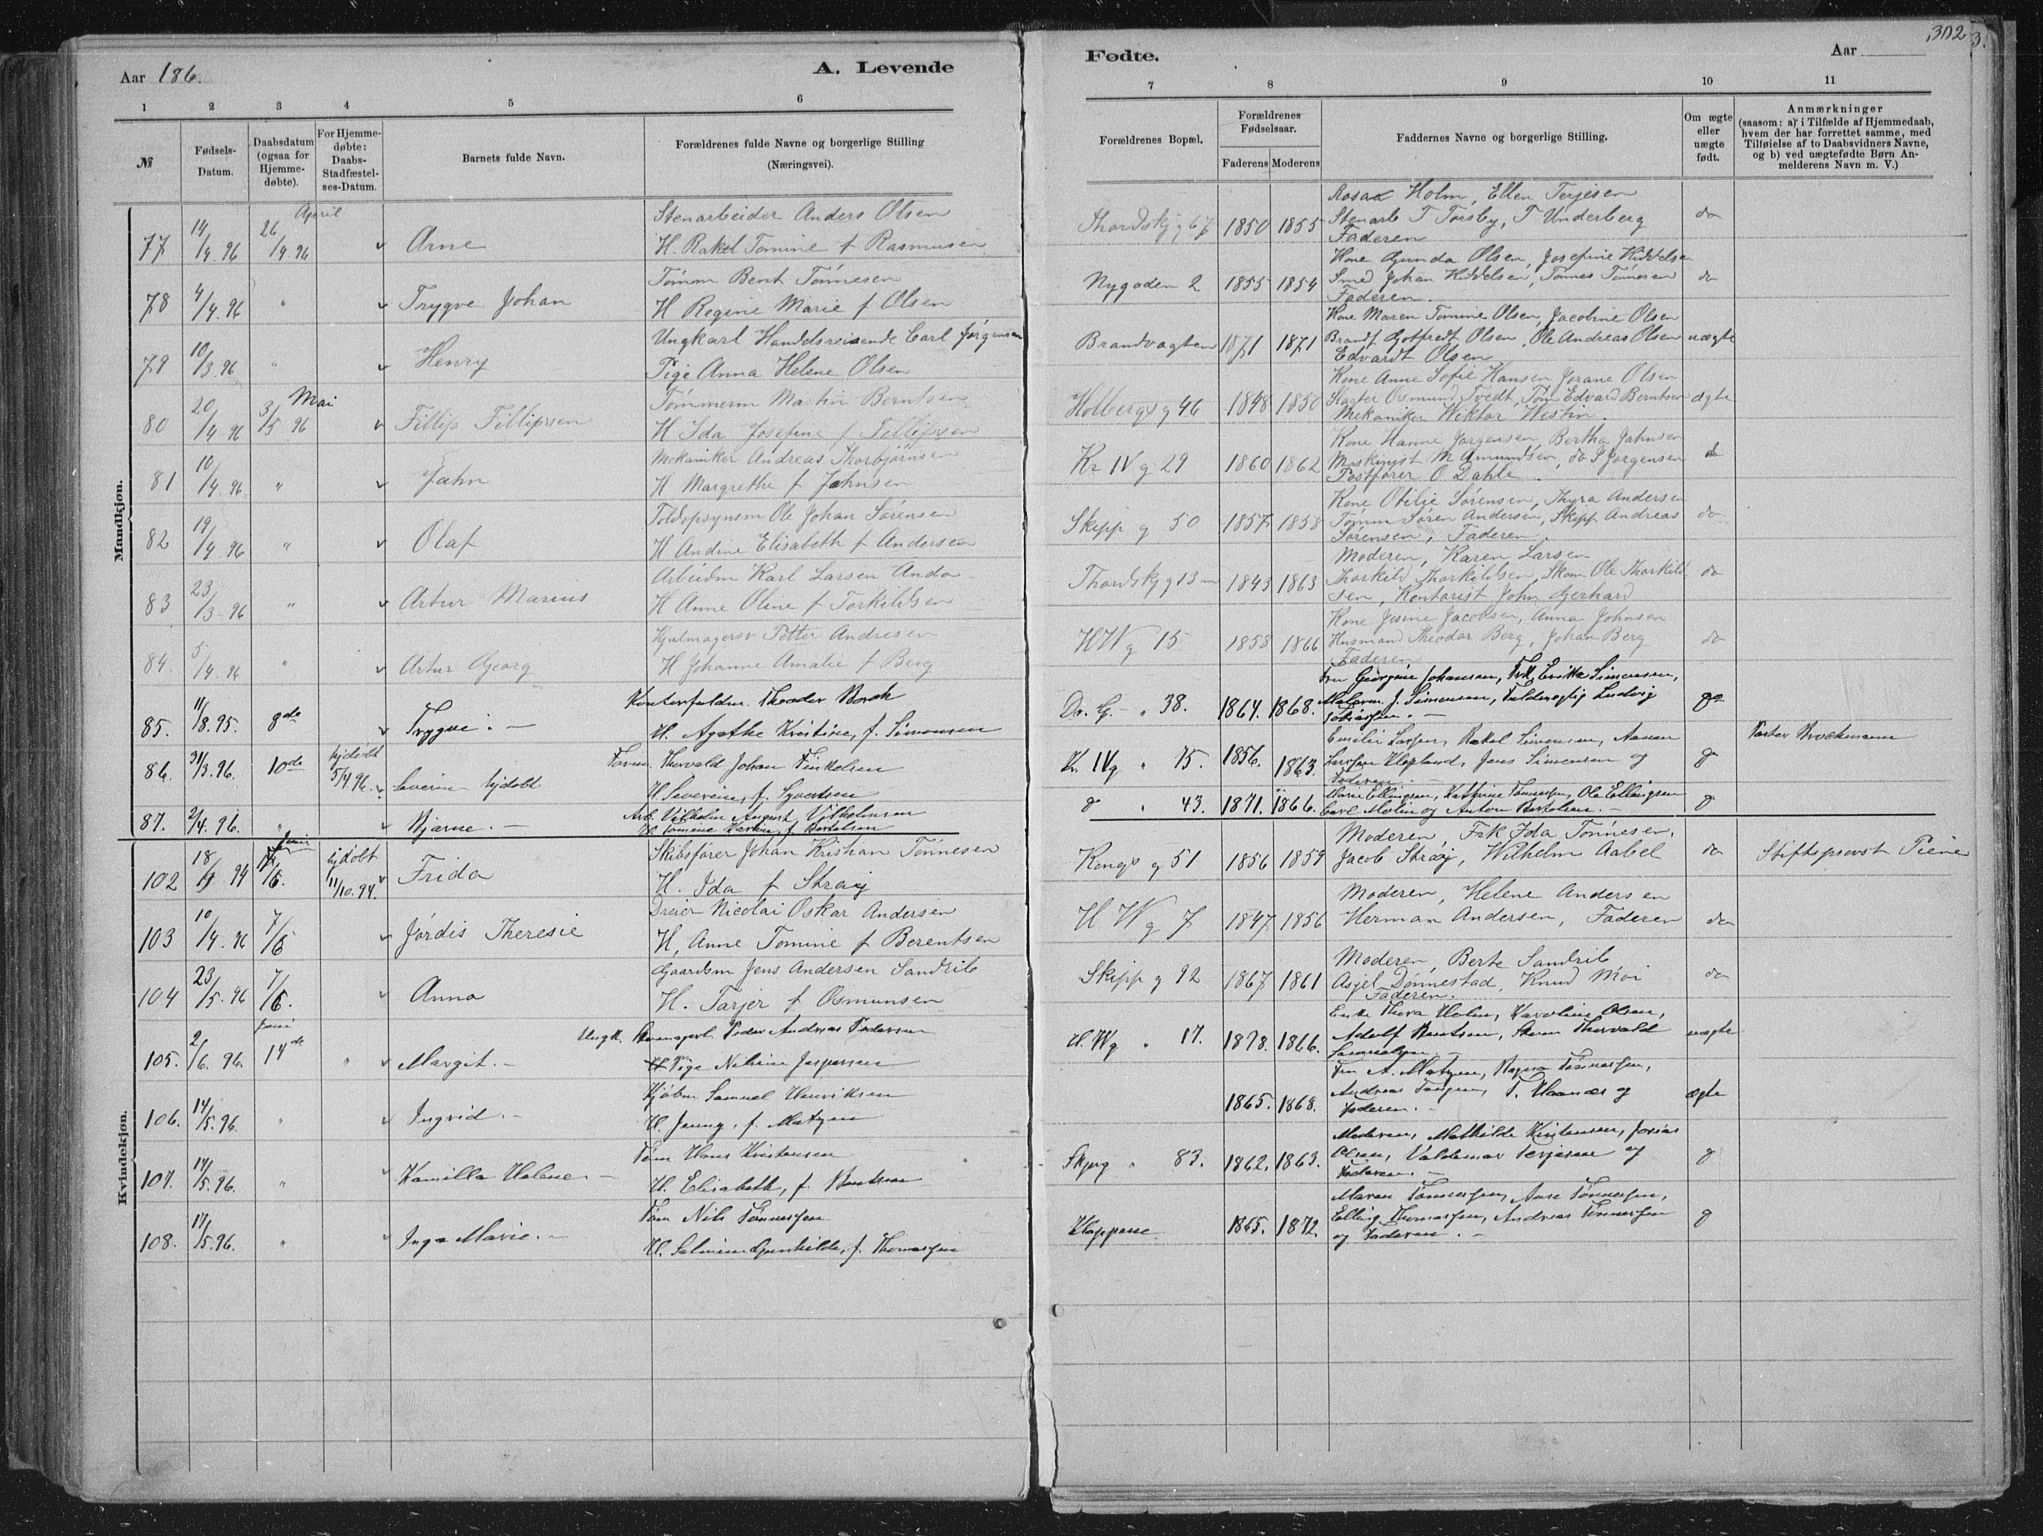 Aar 186.
A. Levende
1 2 3 4 5 6
№
Fødsels-Datum.
Daabsdatum (ogsaa for Hjemmedøbte).
For Hjemmedøbte: Daabs-Stadfæstelses-Datum.
Barnets fulde Navn.
Forældrenes fulde Navne og borgerlige Stilling (Næringsvei).
Mandkjøn.
April
77 14/4 96 26/4 96 Arne Stenarbeider Anders Olsen
H. Rakel Tomine f Rasmusen
78 4/4 96 " Trygve Johan Tømm Bent Tønnesen
H Regine Marie f Olsen
79 10/3 96 " Henry Ungkarl Handelsreisende Carl Jørgensen
Pige Anna Helene Olsen
Mai
80 20/4 96 3/5 96 Fillip Fillipsen Tømmerm Martin Berntsen
H Ida Josefine f Fillipsen
81 10/4 96 " Jahn Mekaniker Andreas Thorbjørnsen
H Margrethe f Jahnsen
82 19/4 96 " Olaf Toldopsynsm Ole Johan Sørensen
H Andine Elisabeth f Andersen
83 23/3 96 " Artur Marius Arbeidm Karl Larsen Anda
H Anne Oline f Torkildsen
84. 5/4 96 " Artur Georg Hjulmagersv Petter Andresen
H Johanne Amalie f Berg
85. 11/8.95. 8de Trygve. Theodor
H. Agathe Kristine, f. Simonsen
86. 31/3.96. 10de hjdøbt 5/4 96. Severin hjdøbt Thorvald Johan Finkelsen
H Severine, f. Syvertsen
87. 2/4.96. " Bjarne. Arb. Vilhelm August Vilhelmsen
H. Tomine f. Bertelsen
Kvindekjøn.
Juni
102 18/9 94 14/6. hjdøbt 11/10.94. Frida Skibsfører Johan Kristian Tønnesen
H. Ida f Straij
103 10/4 96 7/6 Jørdis Theresie Dreier Nicolai Oskar Andersen
H, Anne Tomine f Berentsen
104 23/5 96 7/6. Anna Gaardsm Jens Andersen Sandrib
H. Tarjer f Osmunsen
Juni
105. 2/6. 96. 14de " Margit. Ungk. Peder Andreas Pedersen
Pige Nilsine Jaspersen
106. 14/5.96. " Ingvid. Kjøbm Samuel Henriksen
H. Jenny, f. Matzen
107. 14/5.96. " Kamilla Helene Tøm Hans Kristensen
H. Elisabeth, f. Berntsen
108. 17/5.96. " Inga Marie. Tøm Nils Tønnessen
H. Salmine Gunhilde, f. Thomassen
Fødte.
Aar
302
7 8 9 10 11
Forældrenes Bopæl.
Forældrenes Fødselsaar.
Faderens Moderens
Faddernes Navne og borgerlige Stilling.
Om ægte eller uægte født.
Anmærkninger
(saasom: a) i Tilfælde af Hjemmedaab, hvem der har forrettet samme, med Tilføielse af to Daabsvidners Navne, og b) ved uægtefødte Børn Anmelderens Navn m. V.)
Thordskj g 67 1850 1855 Rosa Holm, Ellen Terjesen
Stenarb T Torsby, T Underberg do
Faderen
Nygaden 2 1855 1854 Kone Gunda Olsen, Josefine Kiddelsen
Smed Johan Kiddelsen, Tønnes Tønesen do
Faderen.
Brandvagten 1871 1871 Kone Maren Tomine Olsen, Jacobine Olsen
Brandf Gotfredt Olsen, Ole Andreas Olsen uægte
Edvardt Olsen
Holbergs g 46 1848 1850 Kone Anne Sofie Hansen Jorane Olsen
Osmund Tvedt, Tøm Edvard Berntsen ægte
Mekaniker Wiktor Westin.
Kr IV g 29 1860 1862 Kone Hanne Jørgensen, Bertha Jahnsen
Maskinist M Amundsen, do S Jørgensen do
Postfører O Dahle
Skipp g 50 1857 1858 Kone Otilie Sørensen, Thyra Andersen
Tømm Søren Andersen, Skipp Andreas do
Sørensen, Faderen.
Thordskj g 13 1843 1863 Moderen, Karen Larsen
Thorkild Thorkildsen, Skom Ole Thorkild do
sen, Kontorist John Gerhard
H W g 15 1858 1866 Kone Jesine Jacobsen, Anna Johnsen
Husmand Theodor Berg, Johan Berg do
Faderen
Dr. G. " 38. 1864. 1868. Georgine Johansen, Frk Emilie Simonsen,
J. Simonsen, Ludvig
Kr. IV g " 75. 1856. 1863. Emilie Larsen, Rakel Simonsen,
Jens Simonsen og
Faderen.
Pastor Brockmann
" 43. 1871. 1866. Marie Ellingsen, Kathrine Tønnessen, Ole Ellingsen
Carl Molin og Anton Bertelsen.
Kongs g 51 1856 1859 Moderen, Frk Ida Tønnesen,
Jacob Straij, Wilhelm Aabel do Stiftsprovst Piene
H W g 7 1847 1856 Moderen, Helene Andersen
Herman Andersen, Faderen do
Skipp g 92 1867 1861 Moderen, Berte Sandrib
Asjel Dønnestad, Knud Moi do
Faderen.
H. W g " 17. 1878. 1866. Enke Thora Holm, Karoline Olsen,
Adolf Berntsen, Thorvald uægte
1865. 1868. Fru A. Matzen, Ragna Tønnessen,
Andreas Tangen, T. Haanæs og ægte
Faderen.
Skjerg " 83. 1862. 1863. Moderen, Mathilde Kristensen, Josias
Olsen, Valdemar Terjesen og
Faderen.
Kleppene 1865. 1872. Maren Tønnessen, Aase Tønnessen,
Elling Thomassen, Andreas Tønnessen
og Faderen.